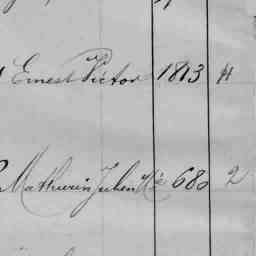 Ernest Victor 1813 4
Mathurin Julien Me 680 2